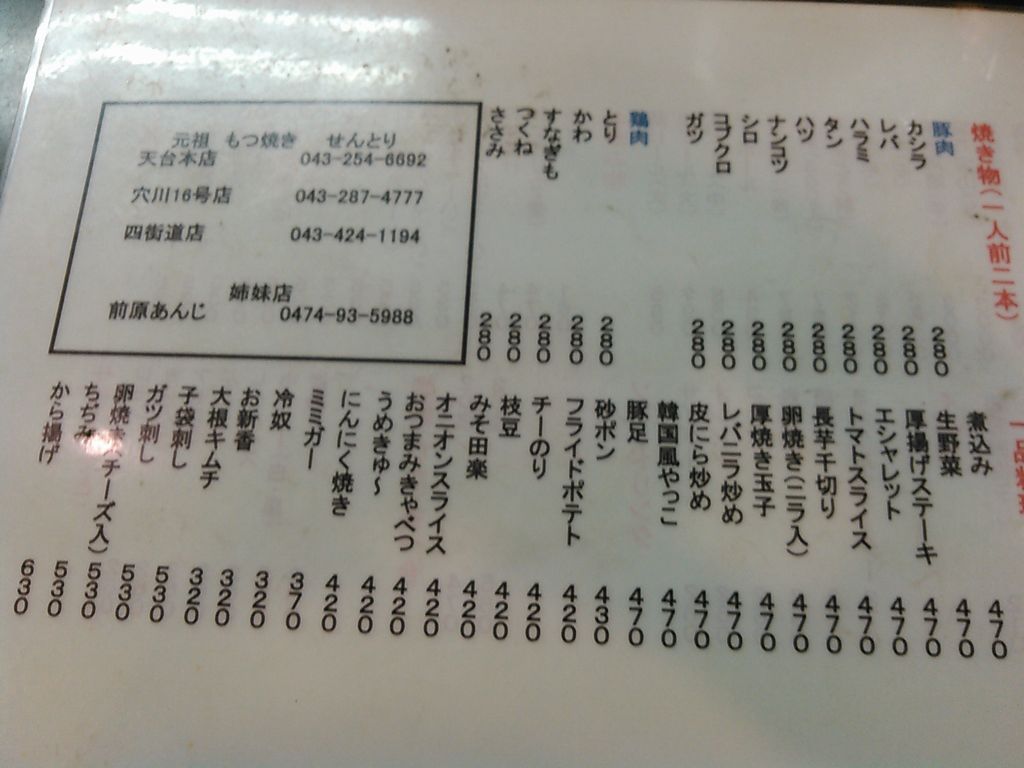 焼き物(一人前二本)
豚肉
カシラ 280
レバ 280
ハラミ 280
タン 280
ハツ 280
ナンコツ 280
シロ 280
コブクロ 280
ガツ 280
鶏肉
とり 280
かわ 280
すなぎも 280
つくね 280
ささみ 280
元祖 もつ焼き せんとり
天台本店 043-254-6692
穴川16号店 043-287-4777
四街道店 043-424-1194
姉妹店
前原あんじ 0474-93-5988
一品料理
煮込み 470
生野菜 470
厚揚げステーキ 470
エシャレット 470
トマトスライス 470
長芋千切り 470
卵焼き(ニラ入) 470
厚焼き玉子 470
レバニラ炒め 470
皮にら炒め 470
韓国風やっこ 470
豚足 470
砂ポン 430
フライドポテト 420
チーのり 420
枝豆 420
みそ田楽 420
オニオンスライス 420
おつまみきゃべつ 420
うめきゅ～ 420
にんにく焼き 420
ミミガー 370
冷奴 320
お新香 320
大根キムチ 320
子袋刺し 530
ガツ刺し 530
卵焼き(チーズ入) 530
ちぢみ 530
から揚げ 630